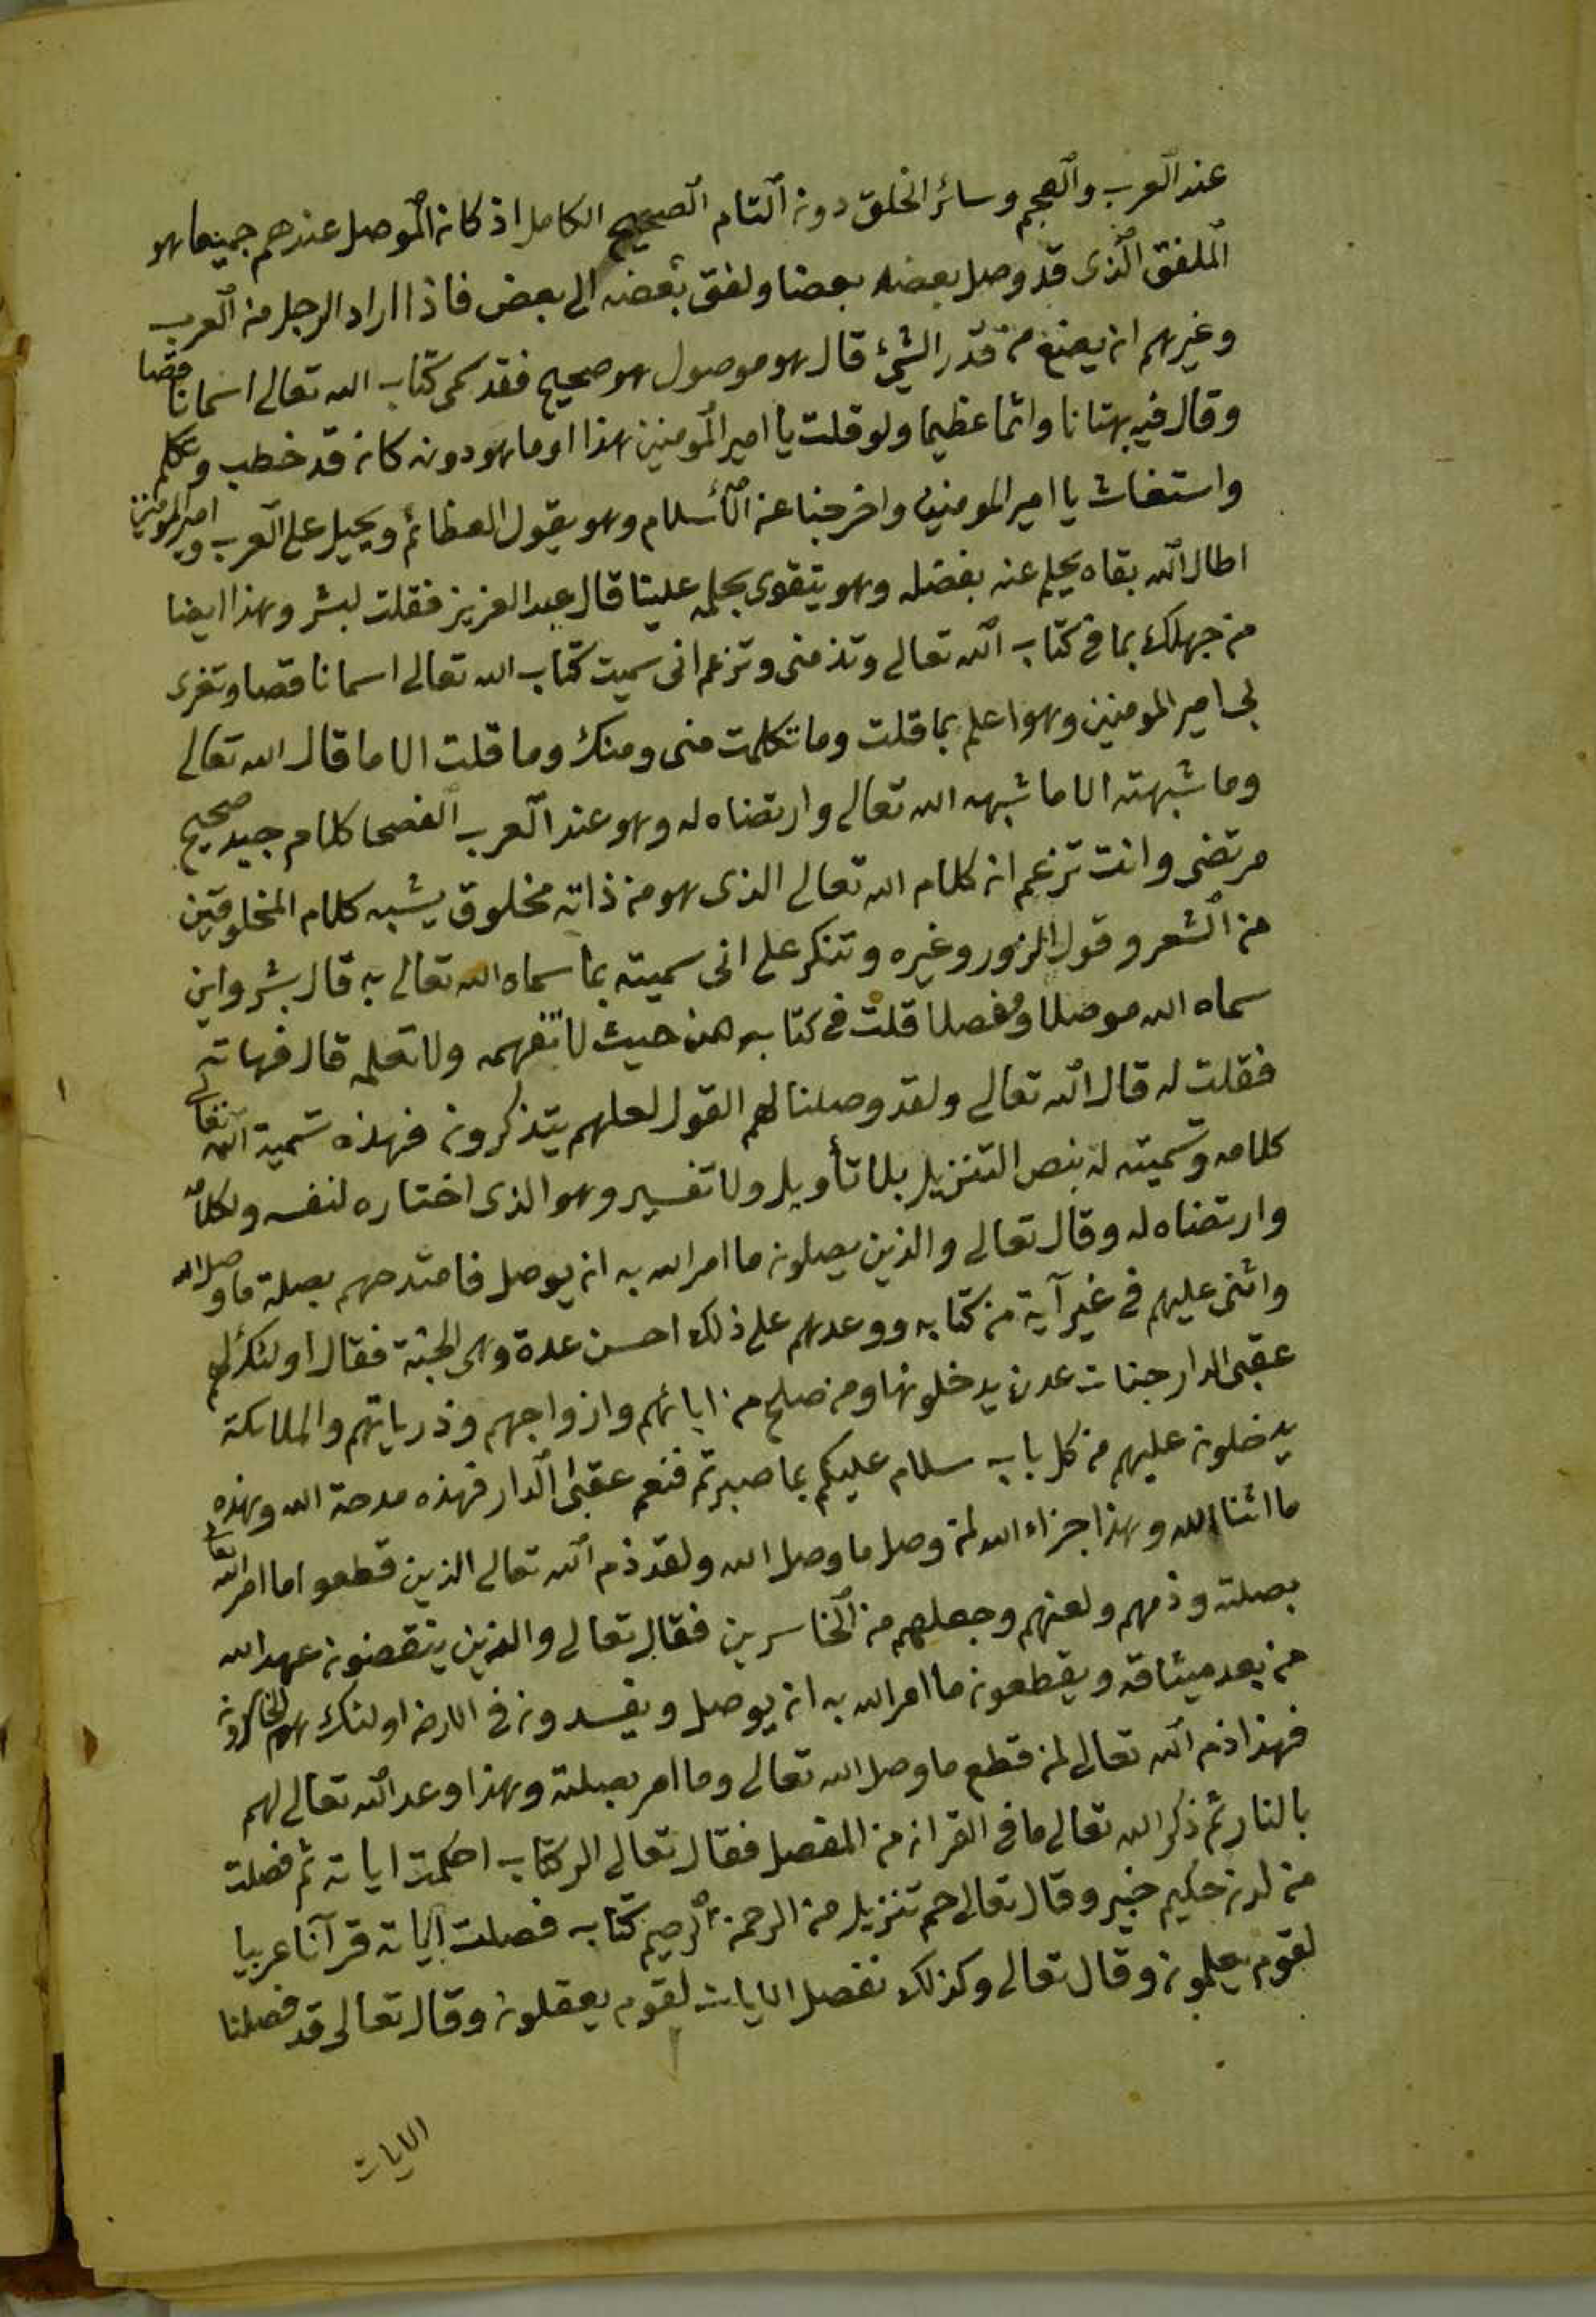 عند العرب والعجم وسائر الخلق دون التام الصحيح الكامل اذ كان الموصل عندهم جميعا هو
الملفق الذى قد وصل بعضه بعضا ولفق بعضه الى بعض فاذا اراد الرجل من العرب
وغيرهم ان يضع من قدر الشئ قال هو موصول هو صحيح فقد سمى كتاب الله تعالى اسما ناقصا
وقال فيه بهتانا واثما عظيما ولو قلت يا امير المومنين هذا او ما هو دونه كان قد خطب وتكلم
واستغاث يا امير المومنين واخرجنا عن الأسلام وهو يقول العظائم ويحيل على العرب وامير المومنين
اطال الله بقاه يحلم عنه بفضله وهو يتقوى بحلمه علينا قال عبد العزيز فقلت لبشر وهذا ايضا
من جهلك بما فى كتاب الله تعالى وتذمنى وتزعم انى سميت كتاب الله تعالى اسما ناقصا وتغرى
بى امير المومنين وهو اعلم بما قلت وما تكلمت منى ومنك وما قلت الا ما قال الله تعالى
وما شبهته الا ما شبهه الله تعالى وارتضاه له وهو عند العرب الفصحا كلام جيد صحيح
مرتضى وانت تزعم ان كلام الله تعالى الذى هو من ذاته مخلوق يشبه كلام المخلوقين
من الشعر وقول الزور وغيره وتنكر على انى سميته بما سماه الله تعالى به قال بشر واين
سماه الله موصلا ومفصلا قلت فى كتابه من حيث لا تفهمه ولا تعلمه قال فهاته
فقلت له قال الله تعالى ولقد وصلنا لهم القول لعلهم يتذكرون فهذه تسمية الله تعالى
كلامه وتسميته له بنص التنزيل بلا تأويل ولا تفسير وهو الذى اختاره لنفسه ولكلامه
وارتضاه له وقال تعالى والذين يصلون ما امر الله به ان يوصل فامتدحهم بصلة ما وصل الله
واثنى عليهم فى غير آية من كتابه ووعدهم على ذلك احسن عدة وهى الجنة فقال اولئك لهم
عقبى الدار جنات عدن يدخلونها ومن صلح من ابائهم وازواجهم وذرياتهم والملائكة
يدخلون عليهم من كل باب سلام عليكم بما صبرتم فنعم عقبى الدار فهذه مدحة الله وهذه
ما اثنا الله وهذا جزاء الله لمن وصل ما وصل الله ولقد ذم الله تعالى الذين قطعوا ما امر الله تعالى
بصلته وذمهم ولعنهم وجعلهم من الخاسرين فقال تعالى والذين ينقضون عهد الله
من بعد ميثاقه ويقطعون ما امر الله به ان يوصل ويفسدون فى الارض اولئك هم الخاسرون
فهذا ذم الله تعالى لمن قطع ما وصل الله تعالى وما امر بصلته وهذا وعد الله تعالى لهم
بالنار ثم ذكر الله تعالى ما فى القران من المفصل فقال تعالى الر كتاب احكمت اياته ثم فصلت
من لدن حكيم خبير وقال تعالى حم تنزيل من الرحمن الرحيم كتاب فصلت آياته قرآنا عربيا
لقوم يعلمون وقال تعالى وكذلك نفصل الايات لقوم يعقلون وقال تعالى قد فصلنا
الايات